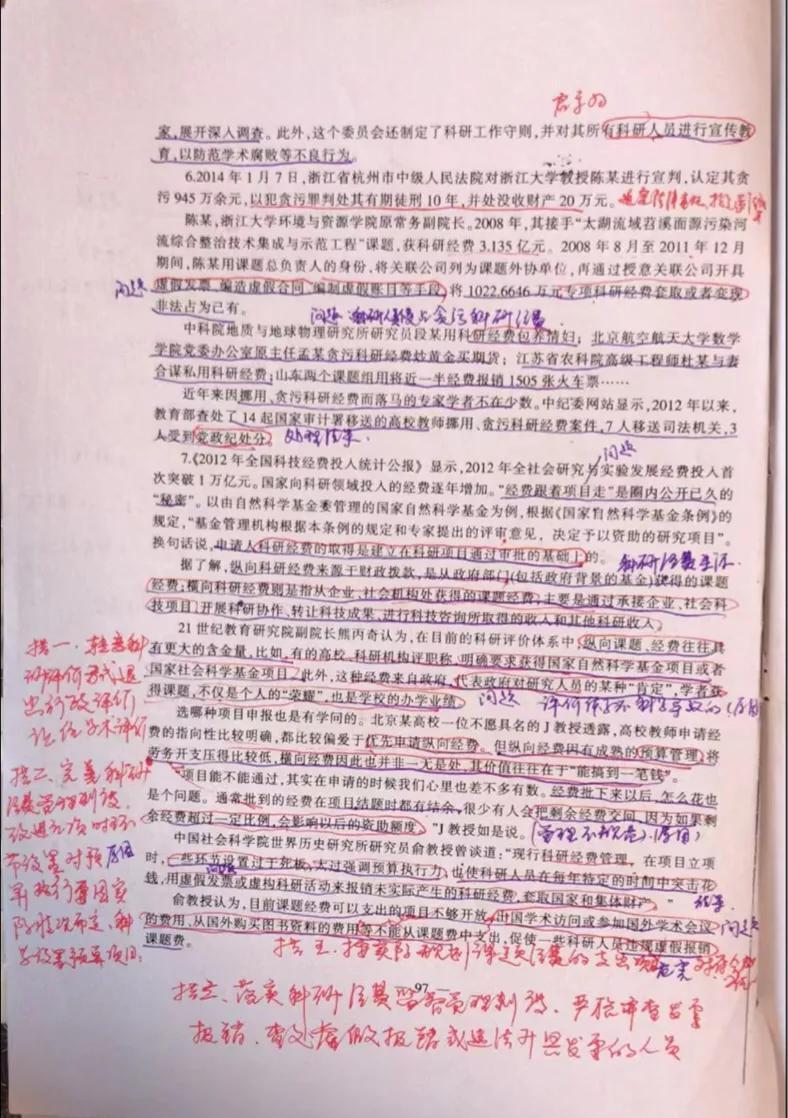 家,展开深入调查。此外,这个委员会还制定了科研工作守则,并对其所有科研人员进行宣传教
育,以防范学术腐败等不良行为。
6.2014年1月7日,浙江省杭州市中级人民法院对浙江大学教授陈某进行宣判,认定其贪
污945万余元,以犯贪污罪判处其有期徒刑10年,并处没收财产20万元。
陈某,浙江大学环境与资源学院原常务副院长。2008年,其接手“太湖流域苕溪面源污染河
流综合整治技术集成与示范工程”课题,获科研经费3.135亿元。2008年8月至2011年12月
期间,陈某用课题总负责人的身份,将关联公司列为课题外协单位,再通过授意关联公司开具
问题
虚假发票、编造虚假合同、编制虚假账目等手段,将1022.6646万元专项科研经费套取或者变现
非法占为己有。
问题 科研人员侵占贪污科研经费
中科院地质与地球物理研究所研究员段某用科研经费包养情妇;北京航空航天大学数学
学院党委办公室原主任孟某贪污科研经费炒黄金买期货;江苏省农科院高级工程师杜某与妻
合谋私用科研经费;山东两个课题组用将近一半经费报销1505张火车票……
近年来因挪用、贪污科研经费而落马的专家学者不在少数。中纪委网站显示,2012年以来,
教育部查处了14起国家审计署移送的高校教师挪用、贪污科研经费案件,7人移送司法机关,3
人受到党政纪处分。
处理结果.
问题
7.《2012年全国科技经费投入统计公报》显示,2012年全社会研究与实验发展经费投入首
次突破1万亿元。国家向科研领域投入的经费逐年增加。“经费跟着项目走”是圈内公开已久的
“秘密”。以由自然科学基金委管理的国家自然科学基金为例,根据《国家自然科学基金条例》的
规定,“基金管理机构根据本条例的规定和专家提出的评审意见,决定予以资助的研究项目”。
换句话说,申请人科研经费的取得是建立在科研项目通过审批的基础上的。
科研经费来源
据了解,纵向科研经费来源于财政拨款,是从政府部门(包括政府背景的基金)获得的课题
经费;横向科研经费则是指从企业、社会机构处获得的课题经费,主要是通过承接企业、社会科
技项目,开展科研协作、转让科技成果、进行科技咨询所取得的收入和其他科研收入。
21世纪教育研究院副院长熊丙奇认为,在目前的科研评价体系中,纵向课题、经费往往具
有更大的含金量,比如,有的高校、科研机构评职称,明确要求获得国家自然科学基金项目或者
国家社会科学基金项目。此外,这种经费来自政府,代表政府对研究人员的某种“肯定”,学者获
得课题,不仅是个人的“荣耀”,也是学校的办学业绩。
问题 评价体系不科学导致的(原因
选哪种项目申报也是有学问的。北京某高校一位不愿具名的J教授透露,高校教师申请经
费的指向性比较明确,都比较偏爱于优先申请纵向经费。但纵向经费因有成熟的预算管理,将
劳务开支压得比较低,横向经费因此也并非一无是处,其价值往往在于“能搞到一笔钱”。
“项目能不能通过,其实在申请的时候我们心里也差不多有数。经费批下来以后,怎么花也
是个问题。通常批到的经费在项目结题时都有结余,很少有人会把剩余经费交回,因为如果剩
余经费超过一定比例,会影响以后的资助额度。”J教授如是说。
(管理不规范)(原因)
中国社会科学院世界历史研究所研究员俞教授曾谈道:“现行科研经费管理,在项目立项
时,一些环节设置过于死板,太过强调预算执行力,也使科研人员在每年特定的时间中突击花
钱,用虚假发票或虚构科研活动来报销未实际产生的科研经费,套取国家和集体财产。”
俞教授认为,目前课题经费可以支出的项目不够开放,出国学术访问或参加国外学术会议
问题
的费用、从国外购买图书资料的费用等不能从课题费中支出,促使一些科研人员违规虚假报销
课题费。
措一、转变科
研评价方式退
出行政评价
措二、完善科研
经费管理制度,
改进立项时环
节设置对预
算执行要因实
际情况而定,科
学设置预算项目;
原因
— 97 —
措三、落实科研经费监督管理制度,严格审查发票
报销、查处虚假报销或违法开具发票的人员